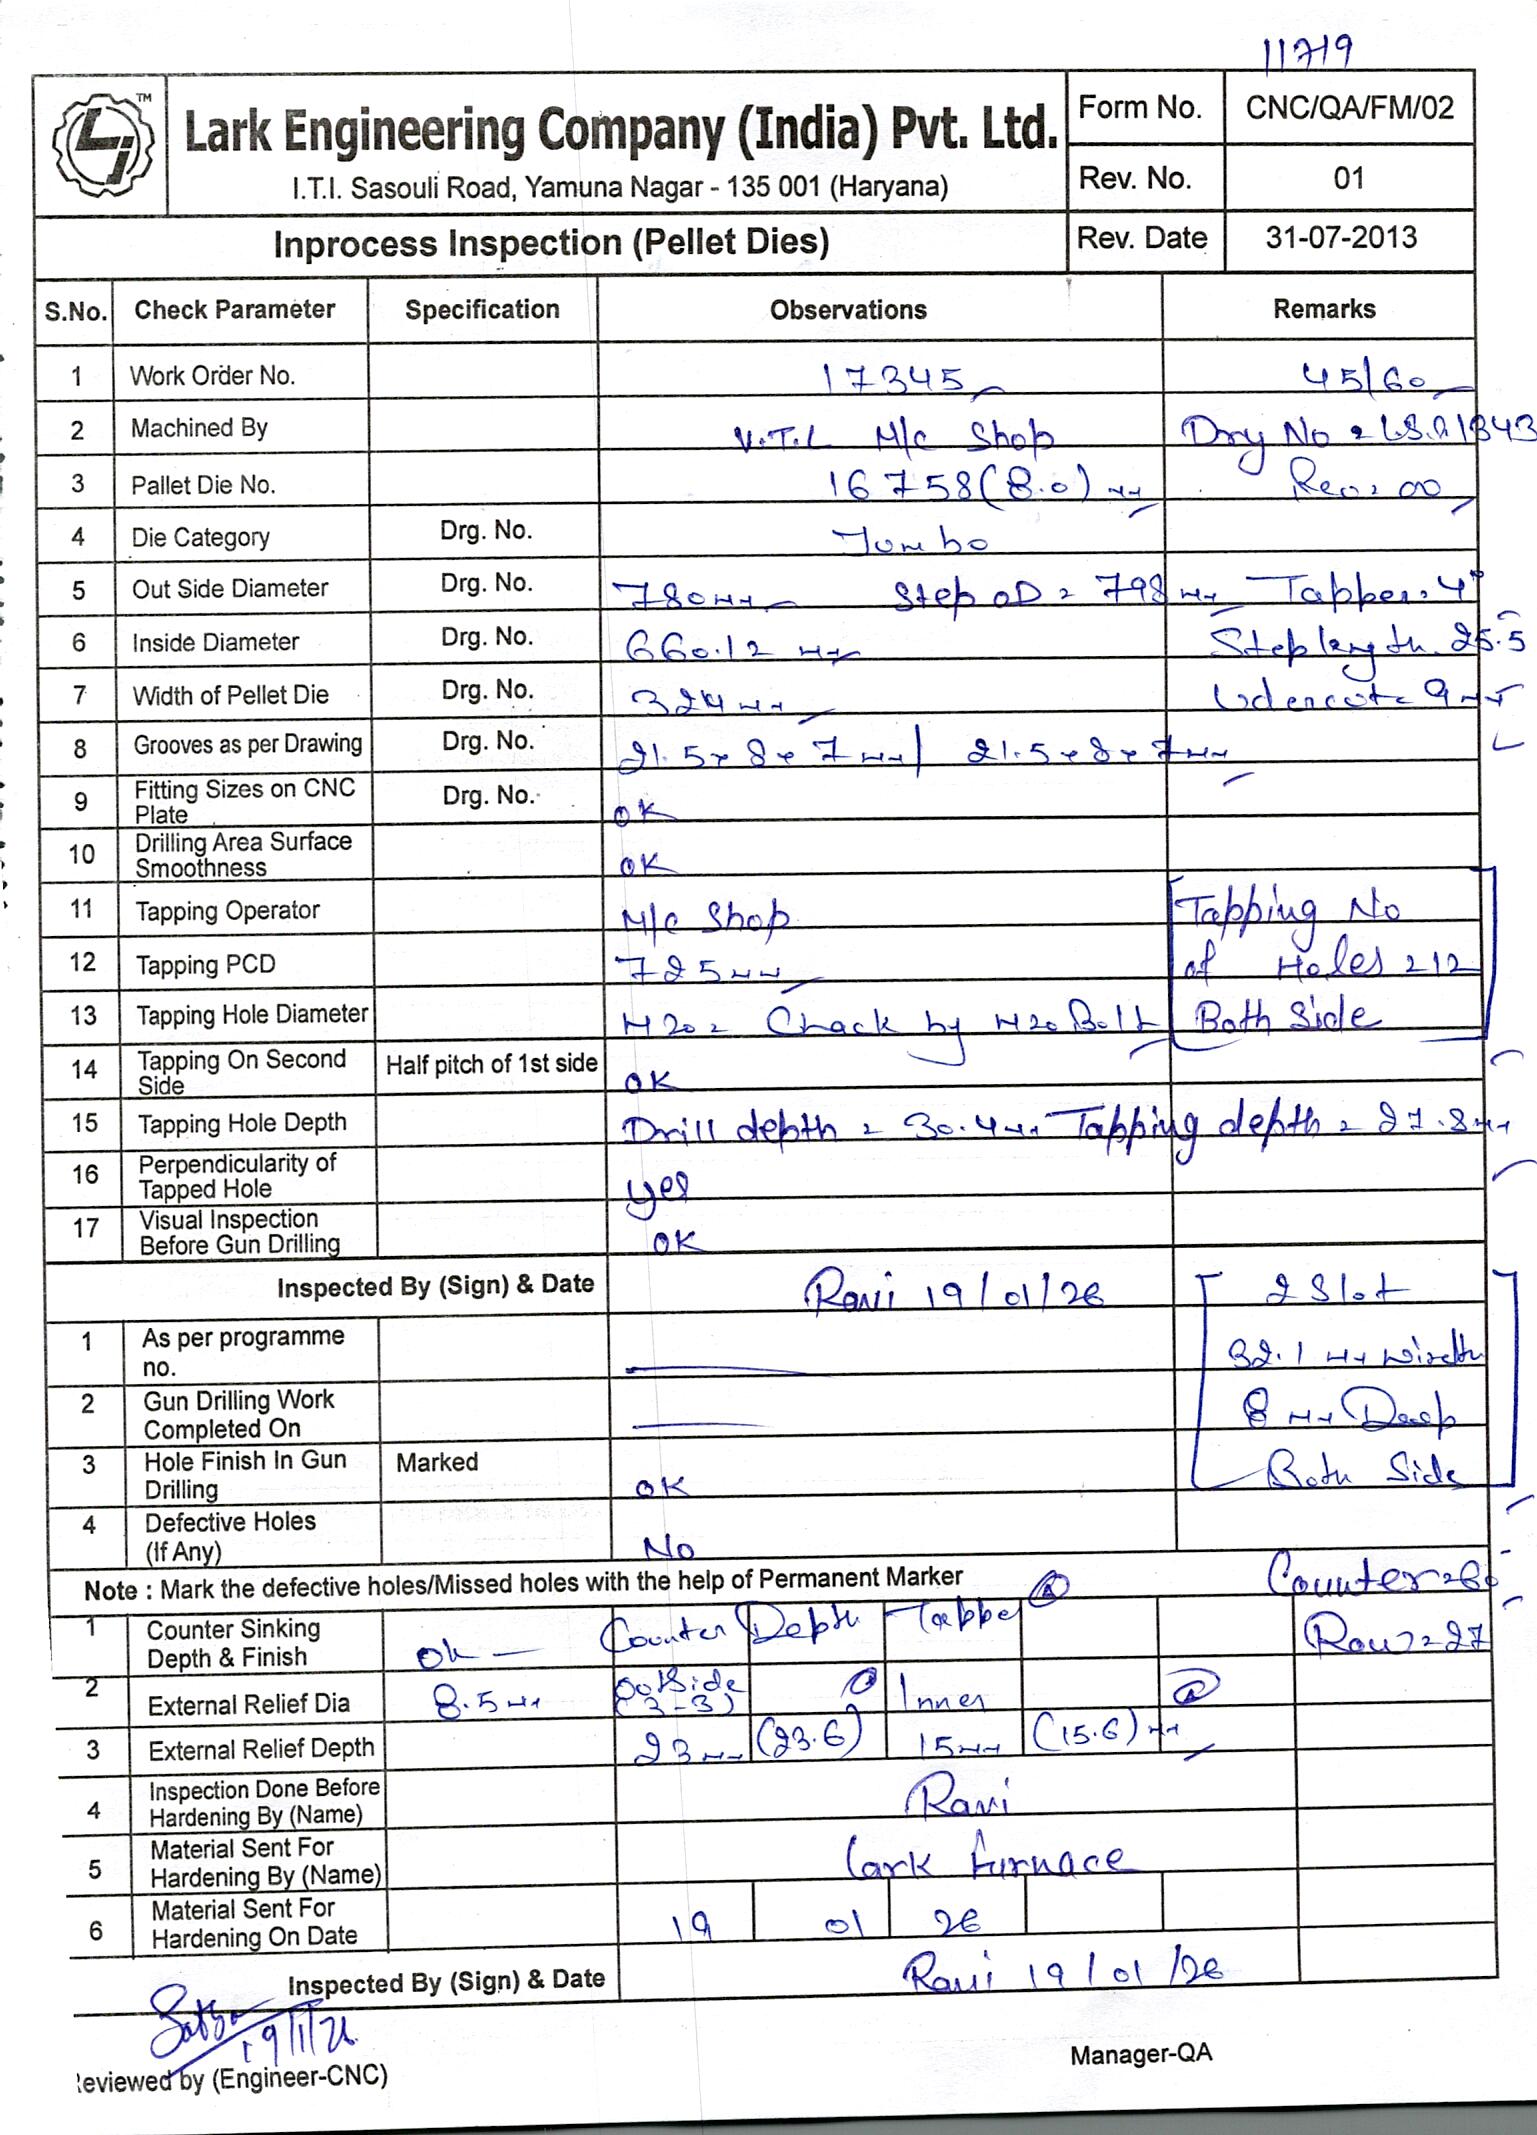 11719
LJ TM
Lark Engineering Company (India) Pvt. Ltd.
I.T.I. Sasouli Road, Yamuna Nagar - 135 001 (Haryana)
Form No. CNC/QA/FM/02
Rev. No. 01
Inprocess Inspection (Pellet Dies)
Rev. Date 31-07-2013
S.No. Check Parameter Specification Observations Remarks
1 Work Order No. 17345 45/60
2 Machined By V.T.L M/c Shop Drg No =
3 Pallet Die No. 16758(8.0) mm Rev = 00
4 Die Category Drg. No. Jumbo
5 Out Side Diameter Drg. No. 780mm Step OD = 798 mm Tapper = 4°
6 Inside Diameter Drg. No. 660.12 mm Step length 25.5
7 Width of Pellet Die Drg. No. 324 mm Udercut = 9 mm
8 Grooves as per Drawing Drg. No. 21.5 x 8 x 7 mm / 21.5 x 8 x 7 mm
9 Fitting Sizes on CNC Plate Drg. No. OK
10 Drilling Area Surface Smoothness OK
11 Tapping Operator M/c Shop Tapping No
12 Tapping PCD 725 mm of Holes = 12
13 Tapping Hole Diameter M20 = Chack by M20 Bolt Both Side
14 Tapping On Second Side Half pitch of 1st side OK
15 Tapping Hole Depth Drill depth = 30.4 mm Tapping depth = 27.8 mm
16 Perpendicularity of Tapped Hole yes
17 Visual Inspection Before Gun Drilling OK
Inspected By (Sign) & Date Ravi 19/01/26 2 Slot
1 As per programme no. 32.1 mm Width
2 Gun Drilling Work Completed On 8 mm Deep
3 Hole Finish In Gun Drilling Marked OK Both Side
4 Defective Holes (If Any) No
Note : Mark the defective holes/Missed holes with the help of Permanent Marker Counter = 60
1 Counter Sinking Depth & Finish Ok Counter Depth Tapper Row = 27
2 External Relief Dia 8.5 mm Outside (3-3) Inner
3 External Relief Depth 23 mm (23.6) 15 mm (15.6) mm
4 Inspection Done Before Hardening By (Name) Ravi
5 Material Sent For Hardening By (Name) Lark Furnace
6 Material Sent For Hardening On Date 19 01 26
Inspected By (Sign) & Date Ravi 19/01/26
19/1/26
Reviewed by (Engineer-CNC) Manager-QA